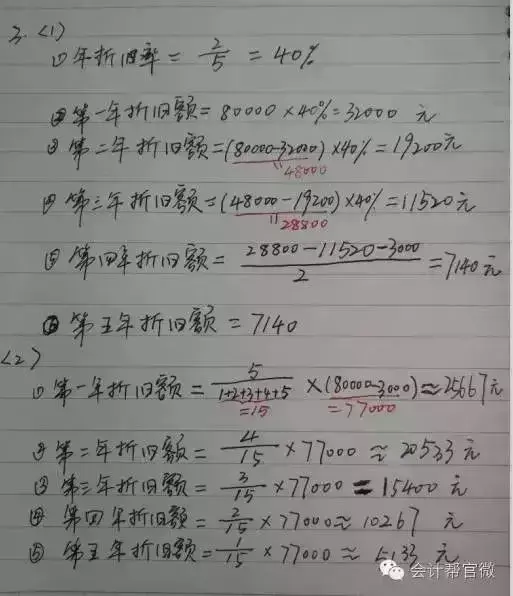 3. <1>
① 年折旧率 = 2/5 = 40%
② 第一年折旧额 = 80000 × 40% = 32000 元
③ 第二年折旧额 = (80000-32000) × 40% = 19200元
48000
④ 第三年折旧额 = (48000-19200) × 40% = 11520元
28800
⑤ 第四年折旧额 = (28800-11520-3000)/2 = 7140元
⑥ 第五年折旧额 = 7140
<2>
① 第一年折旧额 = 5/(1+2+3+4+5) × (80000-3000) ≈ 25667元
=15 =77000
② 第二年折旧额 = 4/15 × 77000 ≈ 20533 元
③ 第三年折旧额 = 3/15 × 77000 = 15400 元
④ 第四年折旧额 = 2/15 × 77000 ≈ 10267 元
⑤ 第五年折旧额 = 1/15 × 77000 ≈ 5133 元
会计帮官微